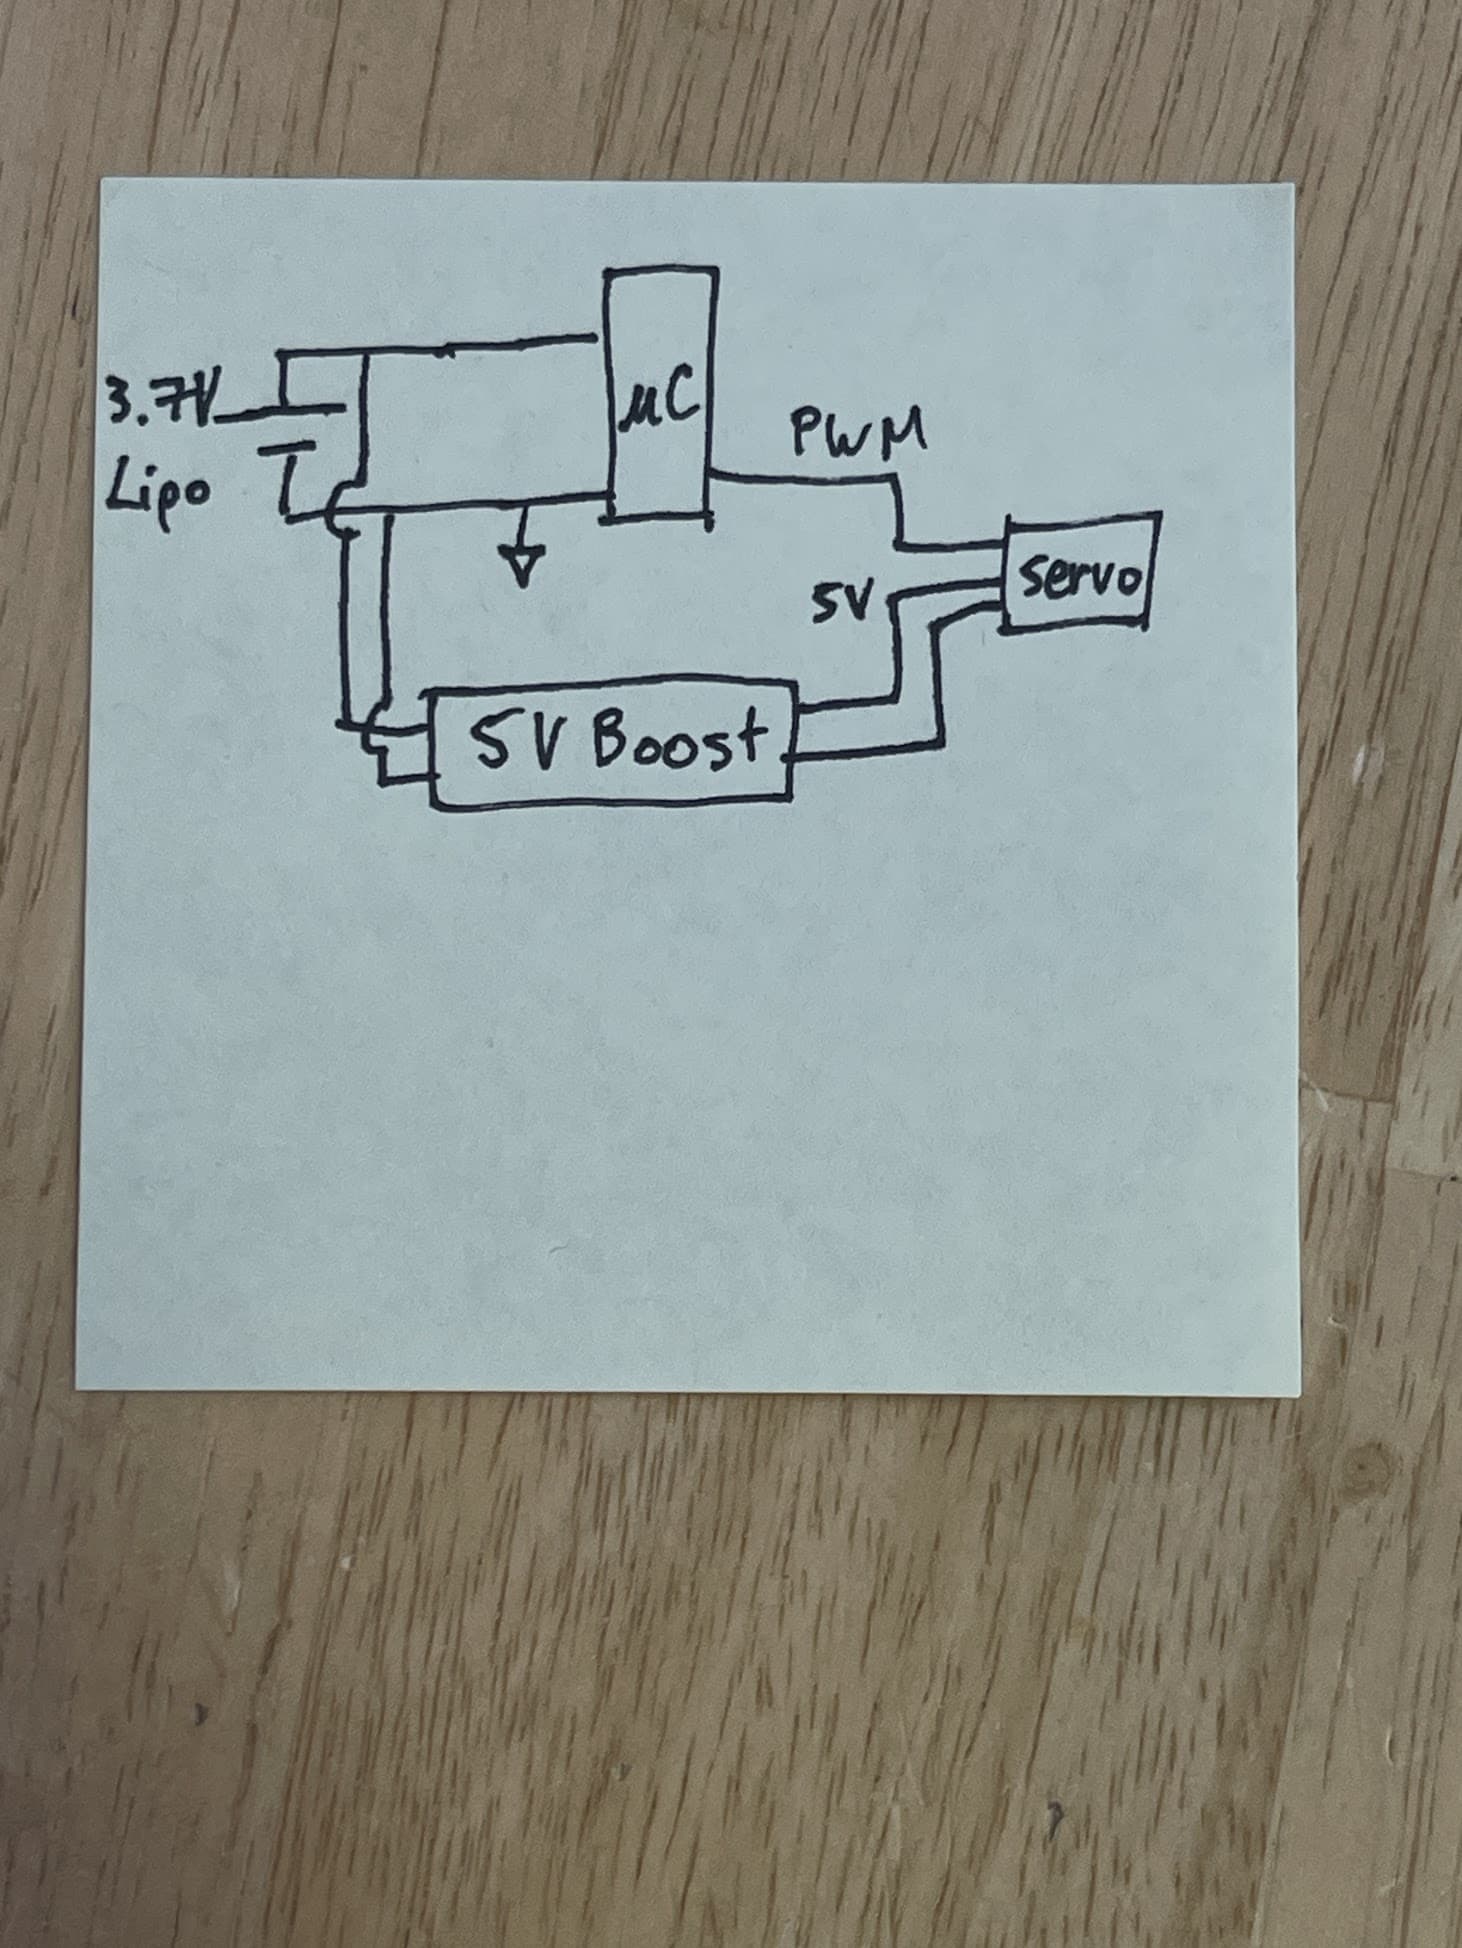 3.7V
Lipo
µC
PWM
5V
Servo
5V Boost